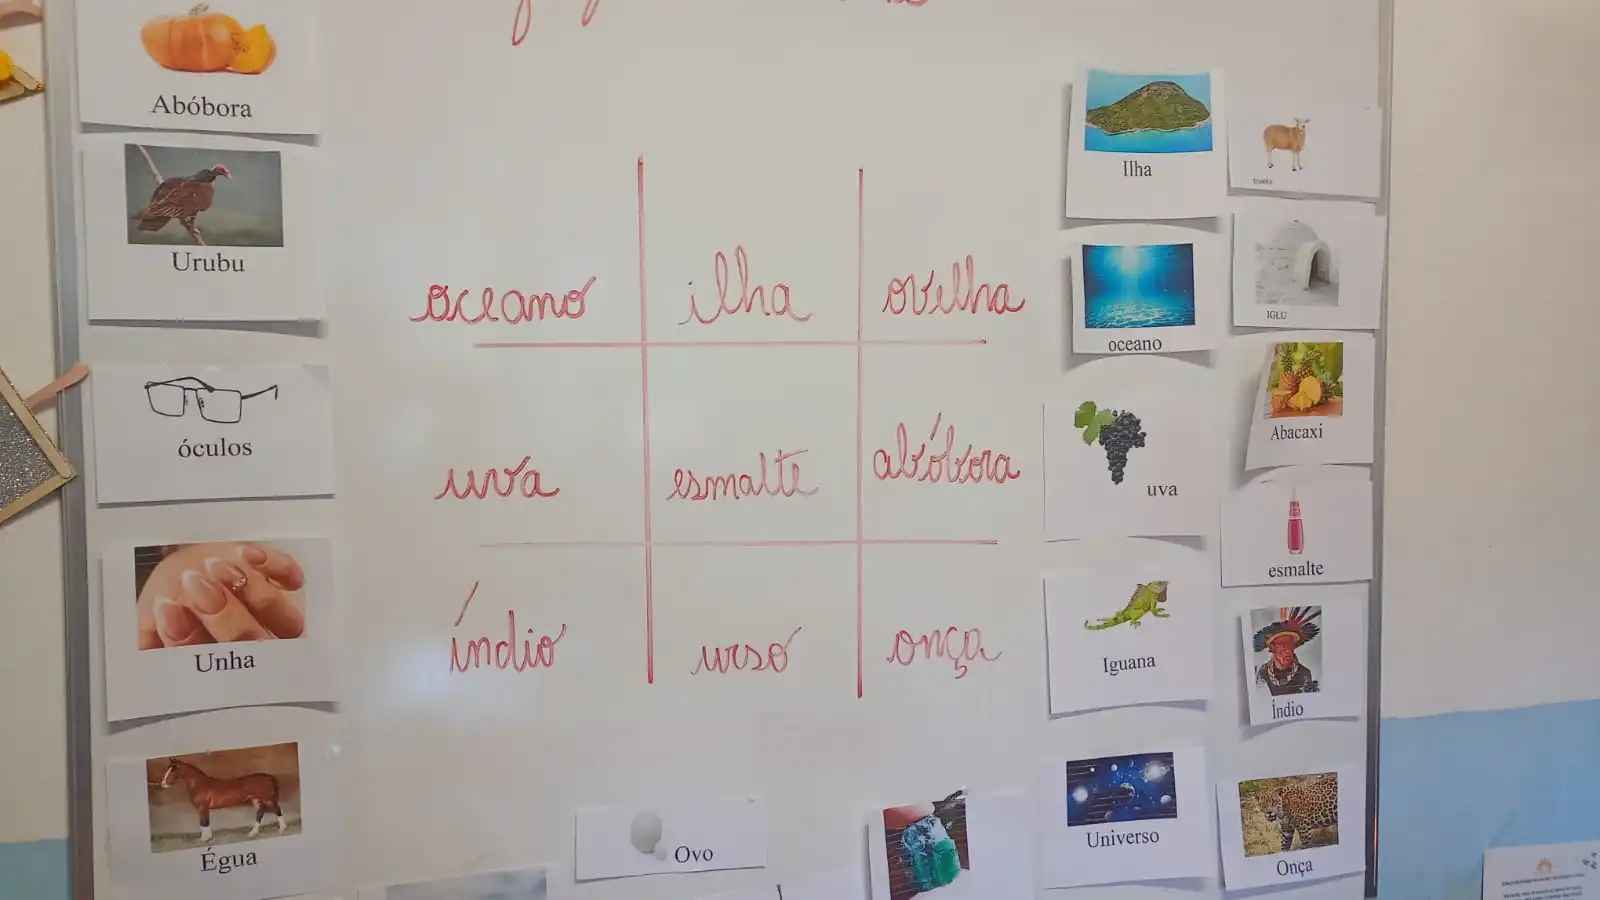 Abóbora
Urubu
óculos
Unha
Égua
oceano
ilha
ovelha
uva
esmalte
abóbora
índio
urso
onça
Ovo
Ilha
oceano
uva
Iguana
Universo
IGLU
Abacaxi
esmalte
Índio
Onça